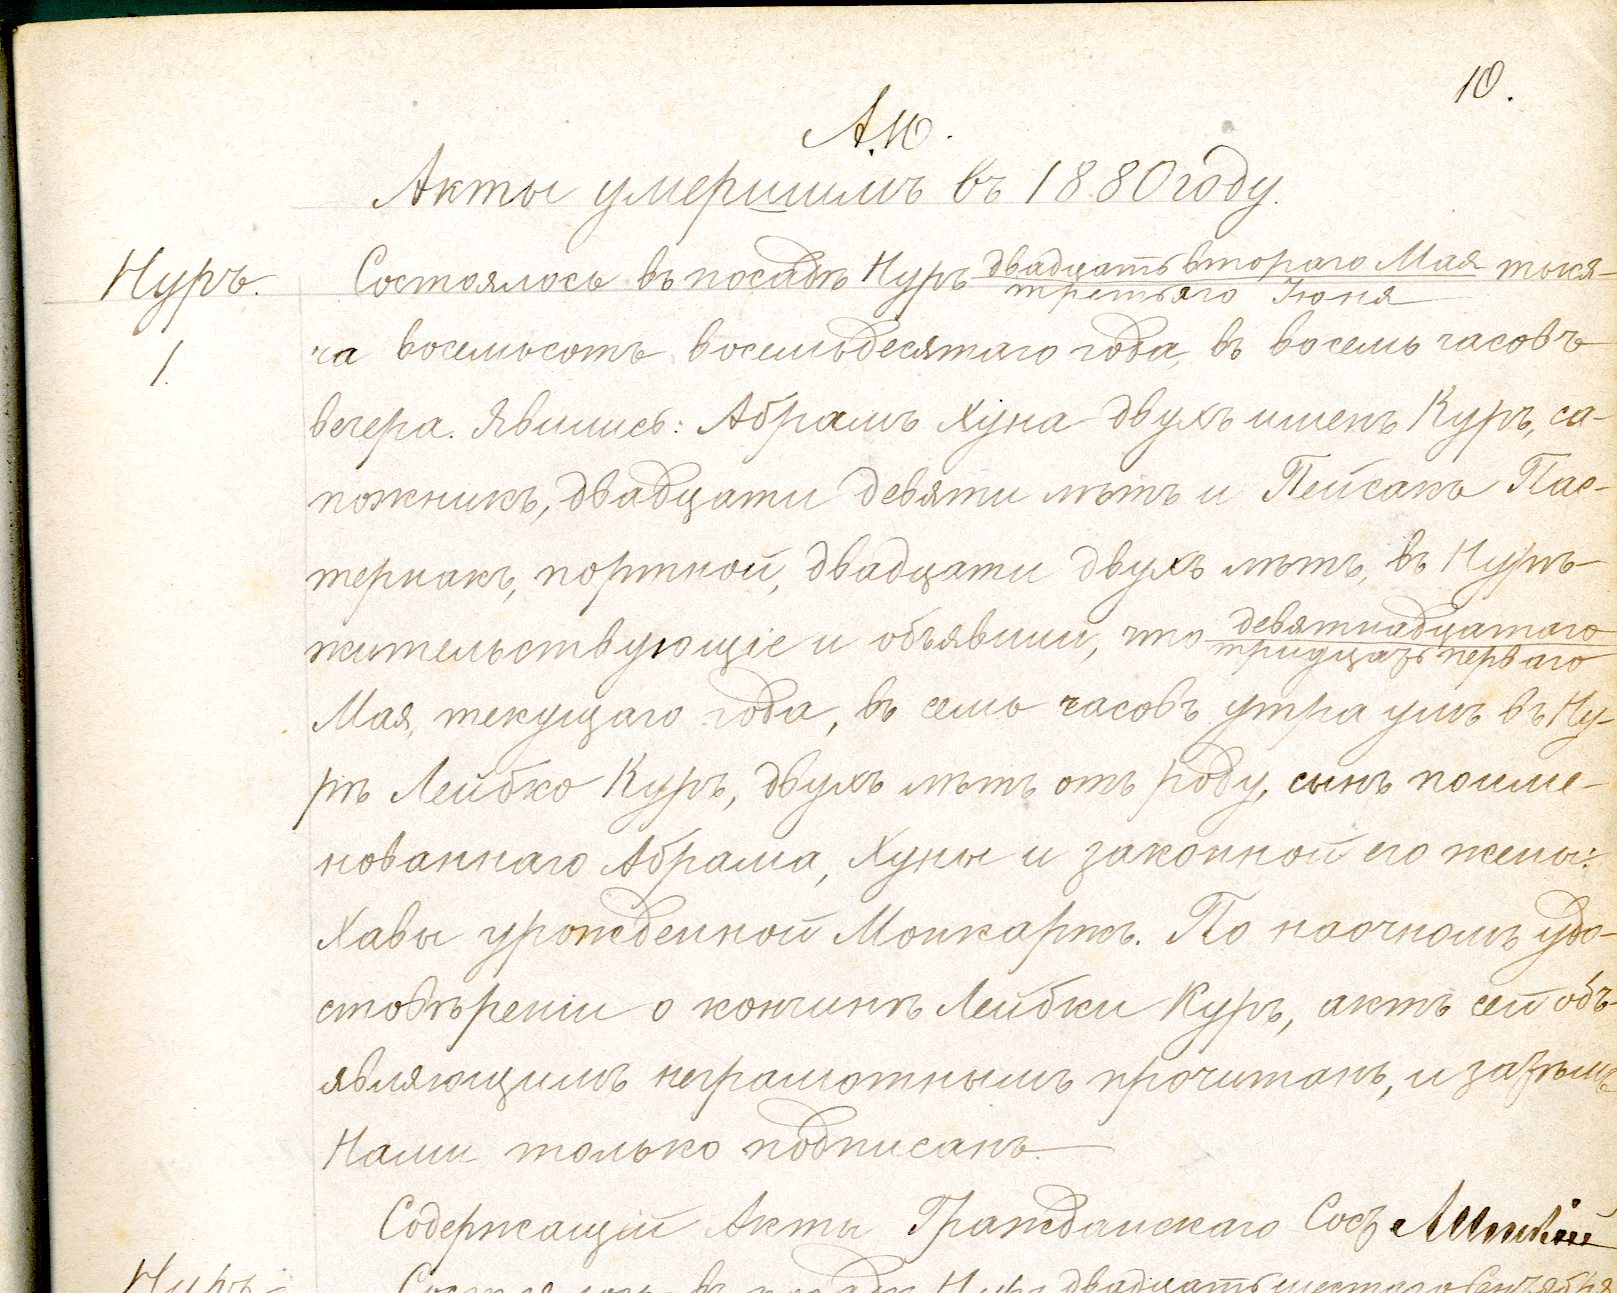 10.
А.10.
Акты умершимъ въ 1880 году.
Нуръ. Состоялось въ посадѣ Нуръ двадцать втораго Мая тыся-
третьяго Іюня
1. ча восемьсотъ восемьдесятаго года, въ восемь часовъ
вечера. Явились: Абрамъ Хуна двухъ именъ Куръ, са-
пожникъ, двадцати девяти лѣтъ и Пейсакъ Пас-
тернакъ, портной, двадцати двухъ лѣтъ, въ Нурѣ
жительствующіе и объявили, что девятнадцатаго
тридцать перваго
Мая, текущаго года, въ семь часовъ утра умъ въ Ну-
рѣ Лейбко Куръ, двухъ лѣтъ отъ роду, сынъ поиме-
нованнаго Абрама, Хуны и законной его жены:
Хавы урожденной Монкаржъ. По наочномъ удо-
стовѣреніи о кончинѣ Лейбки Куръ, актъ сей объ-
являющимъ неграмотнымъ прочитанъ, и затѣмъ
Нами только подписанъ.
Содержащій Акты Гражданскаго Сост
Нуръ Состоялось въ посадѣ Нуръ двадцать шестаго Сентября